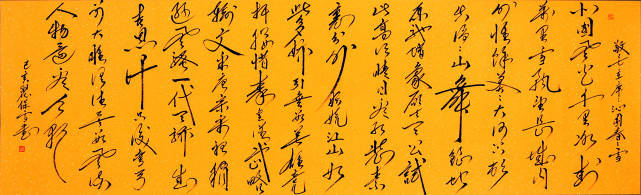 沁园春雪
北国风光千里冰封
万里雪飘望长城内
外惟馀莽莽大河上下顿
失滔滔山舞银蛇
原驰蜡象欲与天公试
比高须晴日看红装素
裹分外妖娆江山如
此多娇引无数英雄竞
折腰惜秦皇汉武略
输文采唐宗宋祖稍
逊风骚一代天骄成
吉思汗只识弯弓
射大雕俱往矣数风流
人物还看今朝
己亥